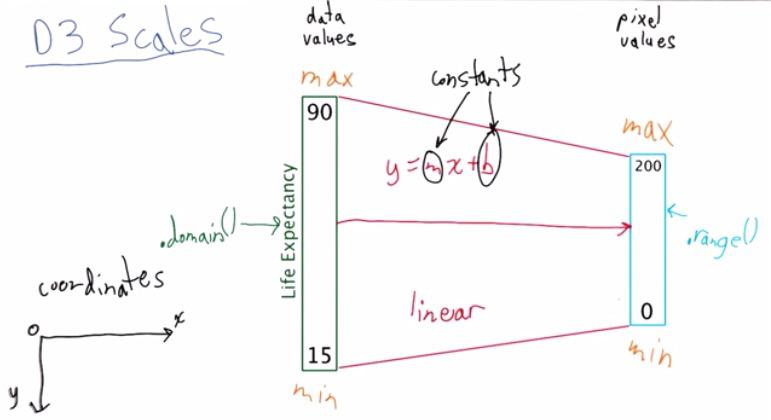 D3 Scales
data
values
pixel
values
max
constants
max
90
200
y = mx + b
Life Expectancy
.domain()
.range()
coordinates
0
x
y
linear
0
15
min
min